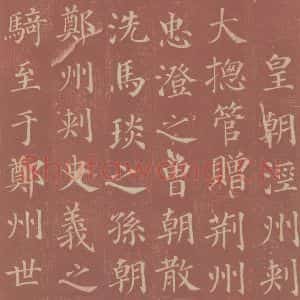 皇朝涇州刾
大揔管贈荆州
忠澄之曽朝散
洗馬琰之孫朝
鄭州刾史義之
騎至于鄭州世